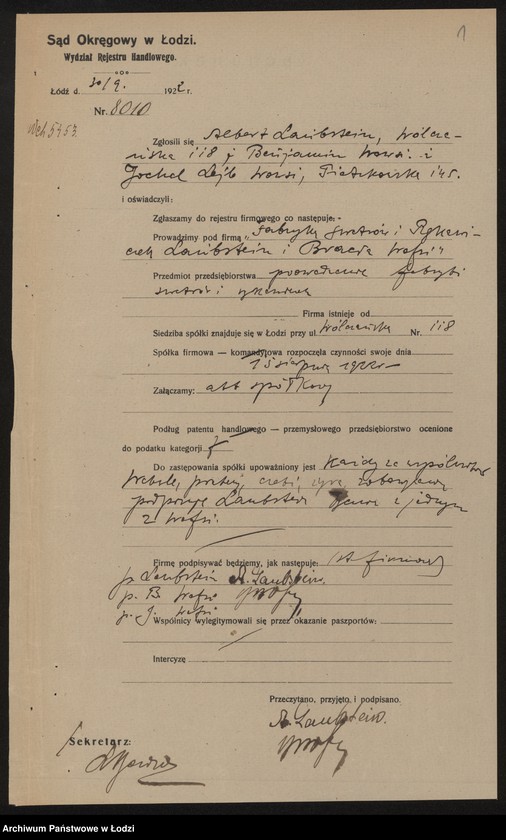 1
Sąd Okręgowy w Łodzi.
Wydział Rejestru Handlowego.
Łódź d. 30/9. 1922 r.
Nr. 8010
Zgłosili się Albert Laubstein, Wólczańska
118 i Benjamin i
145.
i oświadczyli:
Zgłaszamy do rejestru firmowego co następuje:-
Prowadzimy pod firmą „Fabryka swetrów i Rękawi-
czek Laubstein i Bracia
Przedmiot przedsiębiorstwa prowadzenie fabryki
swetrów i rękawiczek
Firma istnieje od
Siedziba spółki znajduje się w Łodzi przy ul. Wólczańska Nr. 118
Spółka firmowa — komandytowa rozpoczęła czynności swoje dnia
15 sierpnia 1922 r—
Załączamy: akt spółkowy
Podług patentu handlowego — przemysłowego przedsiębiorstwo ocenione
do podatku kategorji
Do zastępowania spółki upoważniony jest Każdy ze wspólników
Weksle, czeki, żyra, zobowiązania
podpisuje Laubstein z jednym
z
Firmę podpisywać będziemy, jak następuje:
p. Laubstein A. Laubstein.
p. B
p. J.
Wspólnicy wylegitymowali się przez okazanie paszportów:
Intercyzę
Przeczytano, przyjęto i podpisano.
A. Laubstein.
Sekretarz:
Archiwum Państwowe w Łodzi